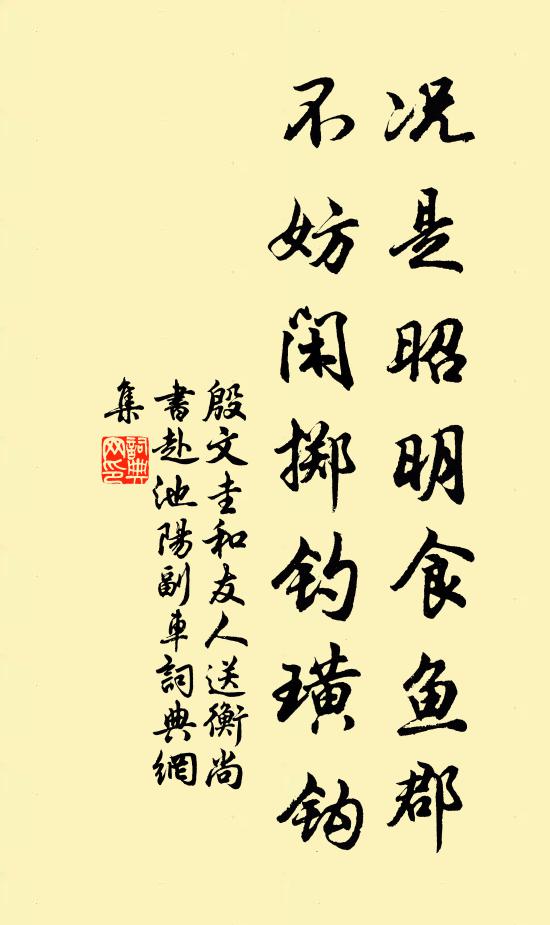 况是昭明食鱼郡
不妨闲掷钓璜钩
殷文圭和友人送衡尚
書赴池陽副車詞典網
集
詞典网印